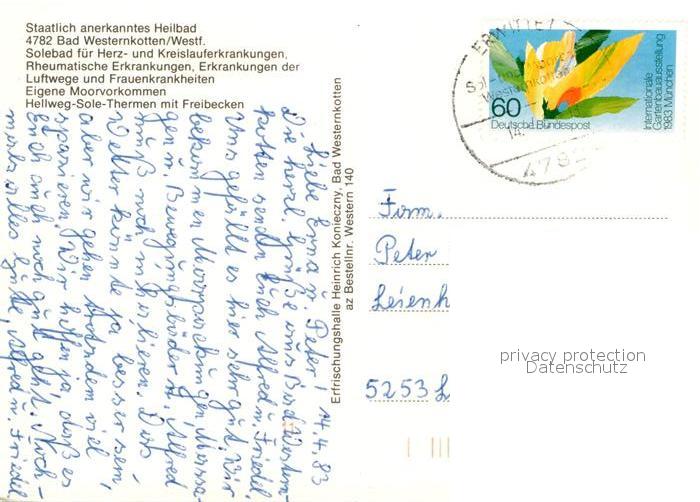 Staatlich anerkanntes Heilbad
4782 Bad Westernkotten/Westf.
Solebad für Herz- und Kreislauferkrankungen,
Rheumatische Erkrankungen, Erkrankungen der
Luftwege und Frauenkrankheiten
Eigene Moorvorkommen
Hellweg-Sole-Thermen mit Freibecken
14.4.83
Liebe Erna u. Peter!
Die herzl. Grüße aus Bad Western-
kotten senden Euch Alfred u. Friedel.
Uns gefällt es hier sehr gut. Wir
bekommen Moorpackungen, Massa-
gen u. Bewegungsbäder u. Alfred
muß noch inhalieren. Das
Wetter könnte ja besser sein,
aber wir gehen trotzdem viel
spazieren. Wir hoffen ja, daß es
Euch auch noch gut geht. Noch-
mals alles Gute, Alfred u. Friedel
Erfrischungshalle Heinrich Konieczny, Bad Westernkotten
az Bestellnr. Western 140
ERWITTE
Westernkotten
14.
478
60
Deutsche Bundespost
Internationale
Gartenbauausstellung
1983 München
Fam.
Peter
Leienh
5253 L
privacy protection
Datenschutz